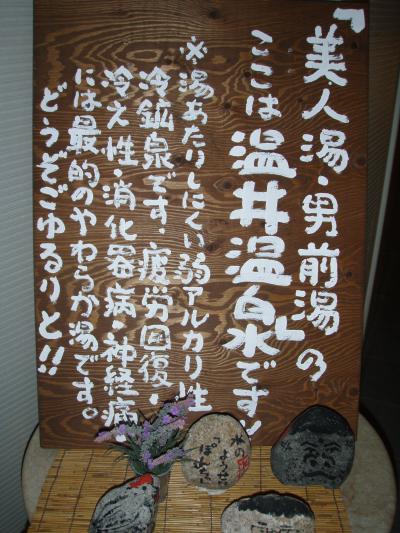 「美人湯・男前湯の
ここは温井温泉」です!
※湯あたりしにくい弱アルカリ性
冷鉱泉です。疲労回復・
冷え性・消化器病・神経痛
には最的のやわらか湯です。
どうぞごゆるりと!!